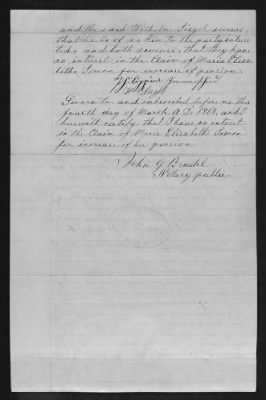 and the said Wilhelm Siegel swears,
that he is of no kin to the party
and both swears, that they have
no interest in the Claim of Maria Elisa
betha Simon for increase of pension.
Sworn to and subscribed before me this
fourth day of March A.D. 1868, and I
herewith certify, that I have no interest
in the Claim of Maria Elisabetha Simon
for increase of her pension
John G
Notary public